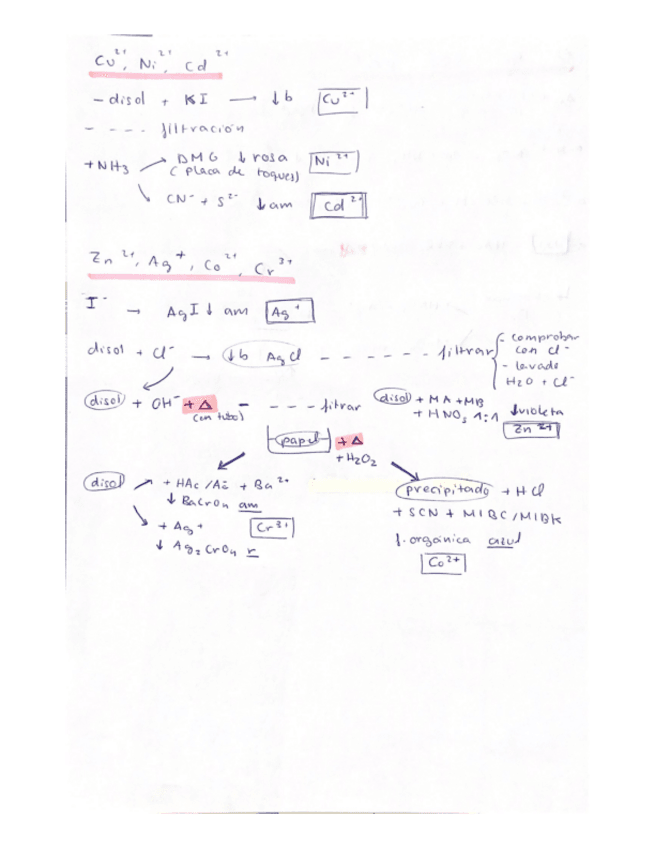 Cu²⁺, Ni²⁺, Cd²⁺
- disol + KI → ↓b [Cu²⁺]
- - - - filtración
+NH₃ → DMG ↓ rosa [Ni²⁺]
(placa de toques)
↘ CN⁻ + S²⁻ ↓am [Cd²⁺]
Zn²⁺, Ag⁺, Co²⁺, Cr³⁺
I⁻ → AgI↓ am [Ag⁺]
disol + Cl⁻ → ↓b AgCl - - - - - - filtrar
- comprobar
con Cl⁻
- lavado
H₂O + Cl⁻
disol + OH⁻ + Δ - - - - filtrar
(en tubo)
disol + MA + MB
+ HNO₃ 1:1 ↓violeta
Zn²⁺
papel + Δ
+ H₂O₂
disol → + HAc/Ac⁻ + Ba²⁺
↓ BaCrO₄ am
↘ + Ag⁺ [Cr³⁺]
↓ Ag₂CrO₄ r
precipitado + HCl
+ SCN + MIBC/MIBK
f. orgánica azul
Co²⁺